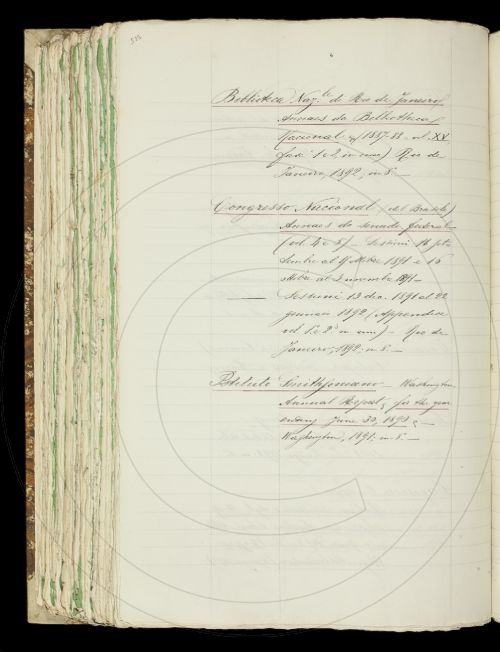 Biblioteca Naz.le di Rio de Janeiro
Annaes da Bibliotheca
Nacional 1887-88 vol XV
fasc. 1 e 2 in uno) Rio de
Janeiro, 1892, in 8.° —
Congresso Nacional (del Brasile)
Annaes do senado federal
(vol. 4 e 5) — Sessioni 16 set-
tembre al 9 8tobre 1891 e 16
ottobre al 3 novembre 1891 —
— Sessioni 18 dic. 1891 al 22
gennaio 1892 (Appendice
vol. 1 e 2 in uno) — Rio de
Janeiro, 1892 in 8.° —
Istituto Smithsoniano — Washington
Annual Report, for the year
ending June 30, 1890, —
Washington, 1891, in 8.° —